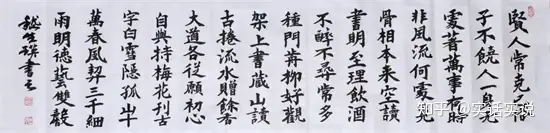 賢人常克己
子不饒人自
處著萬事
非風流何處
骨相本來空讀
書明至理飲酒
不醉不尋常多
種門前柳好觀
架上書藏山讀
古捲流水贈餘香
大道各從願初心
自興持梅花刊古
字白雪隱孤山千
萬春風契三千細
雨明德藝雙馨
書
知乎 @实话实说